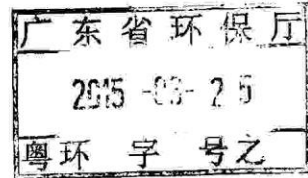 广东省环保厅
2015 -03- 25
粤环 字 号之